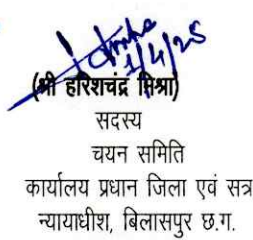 1/4/25
(श्री हरिशचंद्र मिश्रा)
सदस्य
चयन समिति
कार्यालय प्रधान जिला एवं सत्र
न्यायाधीश, बिलासपुर छ.ग.